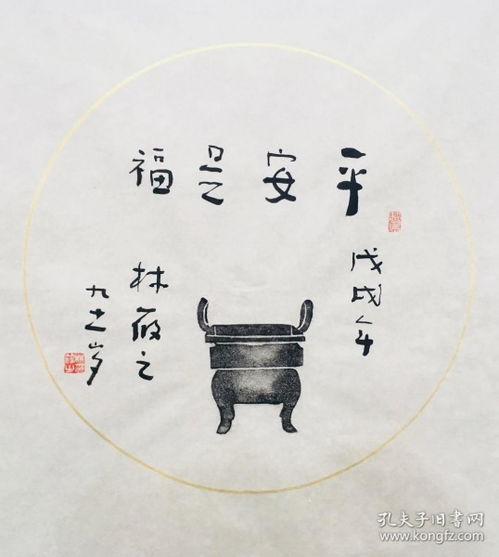 平安是福
戊戌年
林筱之
九十一岁
孔夫子旧书网
www.kongfz.com